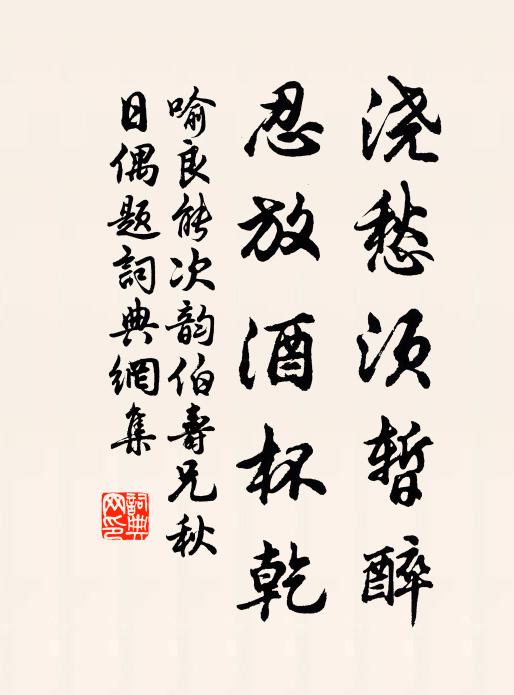 浇愁须暂醉
忍放酒杯乾
喻良能次韵伯壽兄秋
日偶題詞典網集
詞典
网印